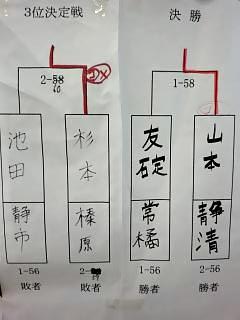 3位決定戦
決勝
2-58
60
1-58
池田
杉本
友碇
山本
静市
榛原
常橘
静清
1-56
敗者
2-
敗者
1-56
勝者
2-56
勝者